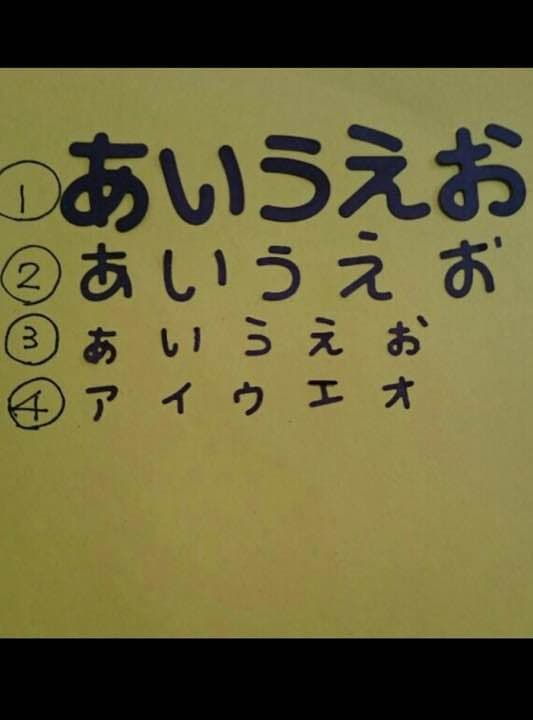 ① あいうえお
② あいうえお
③ あいうえお
④ アイウエオ